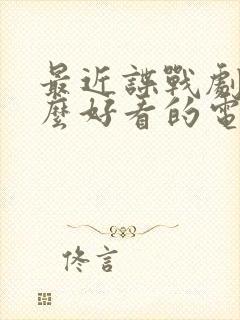 最近諜戰劇
麼好看的電
佟言